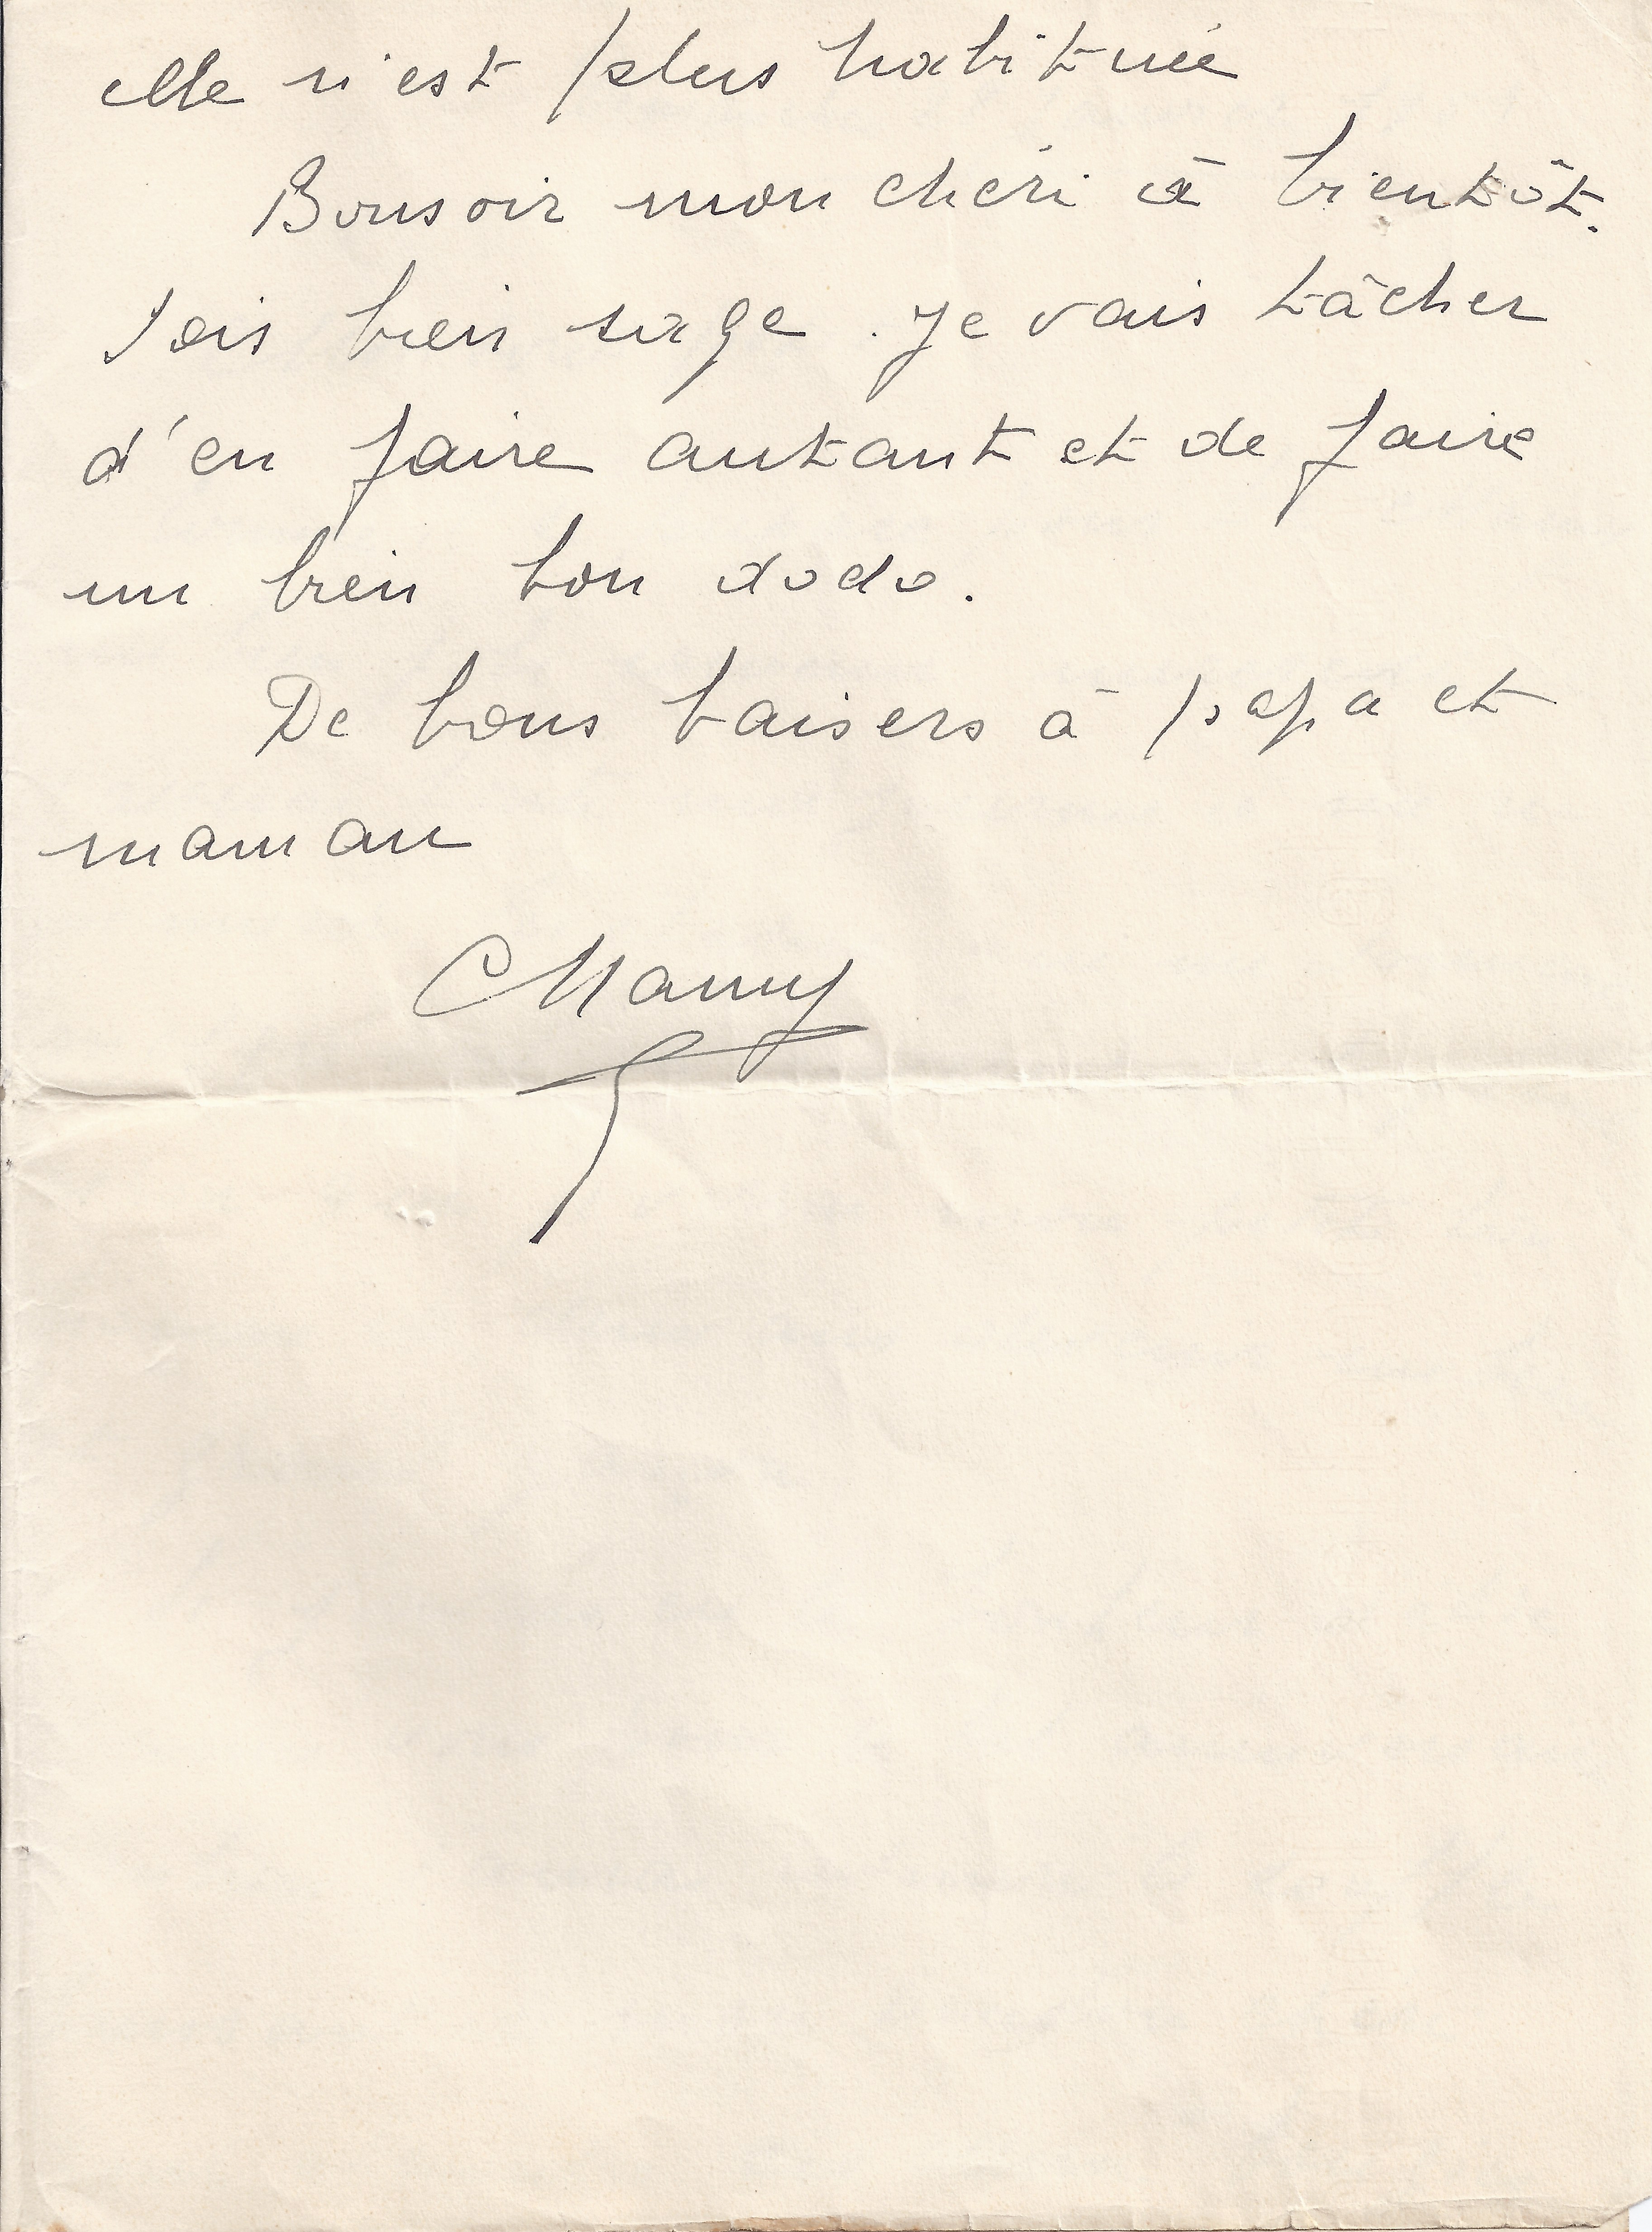 elle n'est plus habituée
Bonsoir mon chéri à bientôt.
Sois bien sage. Je vais tâcher
d'en faire autant et de faire
un bien bon dodo.
De bons baisers à papa et
maman
Mamy